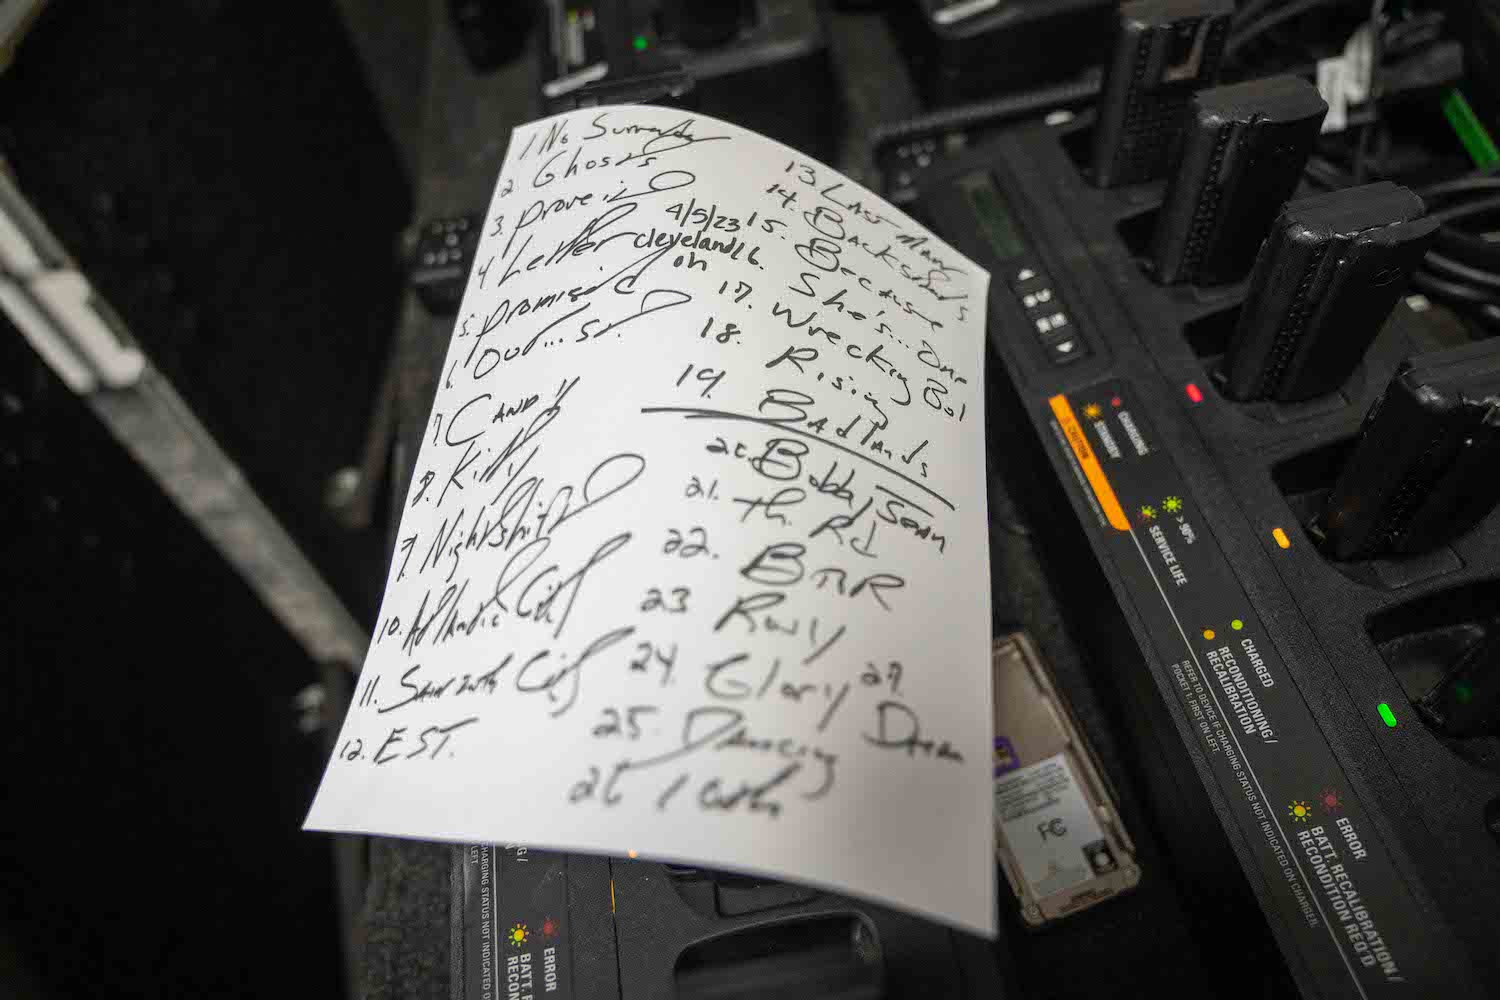 1. No Surrender
2. Ghosts
3. Prove it
4 Letter
5. Promised
6. Our... S..
7. Candy
8. Kitty
9. Nightshift
10. Atlantic City
11. City
12. E ST.
4/5/23
Cleveland
oh
13 Last Man
14. Backstreets
15. Because
16. She's... One
17. Wrecking Bal
18. Rising
19. Badlands
20. Bobby Jean
21. th Rd
22. BTR
23 Rosy
24. Glory
25. Dancing
26 10th
27. Dream
CAUTION
STANDBY
CHARGING
SERVICE LIFE
> 90%
RECONDITIONING/
RECALIBRATION
CHARGED
REFER TO DEVICE IF CHARGING STATUS NOT INDICATED ON CHARGER.
POCKET 1, FIRST ON LEFT.
BATT. RECALIBRATION/
RECONDITION REQ'D
ERROR
FC
CHARGING STATUS NOT INDICATED ON CHARGER.
LEFT.
BATT. R
RECON
ERROR